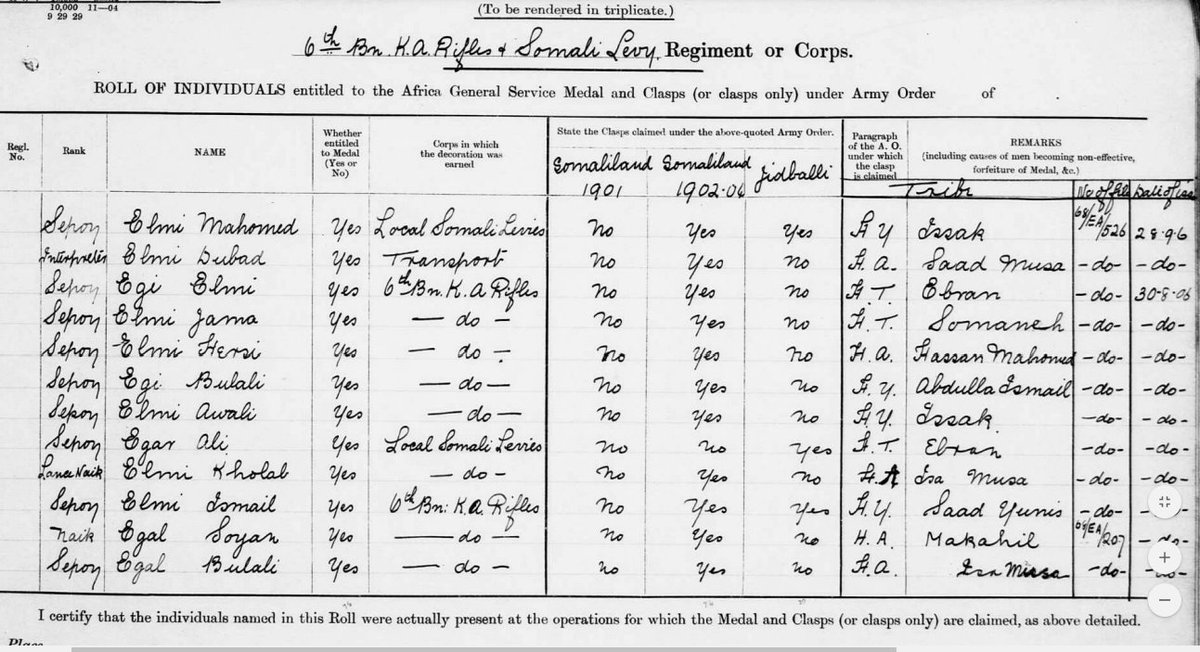 10,000 11—04
9 29 29
(To be rendered in triplicate.)
6th Bn. K.A. Rifles & Somali Levy Regiment or Corps.
ROLL OF INDIVIDUALS entitled to the Africa General Service Medal and Clasps (or clasps only) under Army Order of
Regl. No. Rank NAME Whether entitled to Medal (Yes or No) Corps in which the decoration was earned State the Clasps claimed under the above-quoted Army Order. Paragraph of the A. O. under which the clasp is claimed REMARKS (including causes of men becoming non-effective, forfeiture of Medal, &c.)
Somaliland 1901 Somaliland 1902-04 Jidballi Tribe No of File Date of iss
Sepoy Elmi Mahomed Yes Local Somali Levies No Yes Yes H Y Issak 68/EA/526 28.9.6
Interpreter Elmi Dubad Yes Transport No Yes No H. A. Saad Musa -do- -do-
Sepoy Egi Elmi Yes 6th Bn. K. A Rifles No Yes No H T. Ebran -do- 30-8-06
Sepoy Elmi Jama Yes — do — No Yes No H. T. Somaneh -do- -do-
Sepoy Elmi Hersi Yes — do — No Yes No H. A. Hassan Mahomed -do- -do-
Sepoy Egi Bulali Yes — do — No Yes No H. Y. Abdulla Ismail -do- -do-
Sepoy Elmi Awali Yes — do — No Yes No H. Y. Issak -do- -do-
Sepoy Egar Ali Yes Local Somali Levies No No Yes H. T. Ebran -do- -do-
Lance Naik Elmi Kholab Yes — do — No Yes No H. A Isa Musa -do- -do-
Sepoy Elmi Ismail Yes 6th Bn: K. A. Rifles No Yes Yes H. Y. Saad Yunis -do- -do-
Naik Egal Soyan Yes — do — No Yes No H. A. Makahil 68/EA/207 -do-
Sepoy Egal Bulali Yes — do — No Yes No H. A. Isa Musa -do- -do-
I certify that the individuals named in this Roll were actually present at the operations for which the Medal and Clasps (or clasps only) are claimed, as above detailed.
Place